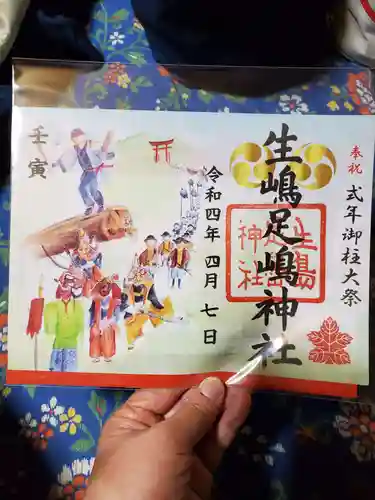 奉祝 式年御柱大祭
生嶋足嶋神社
生島足島神社
令和四年 四月 七日
壬寅
壬寅